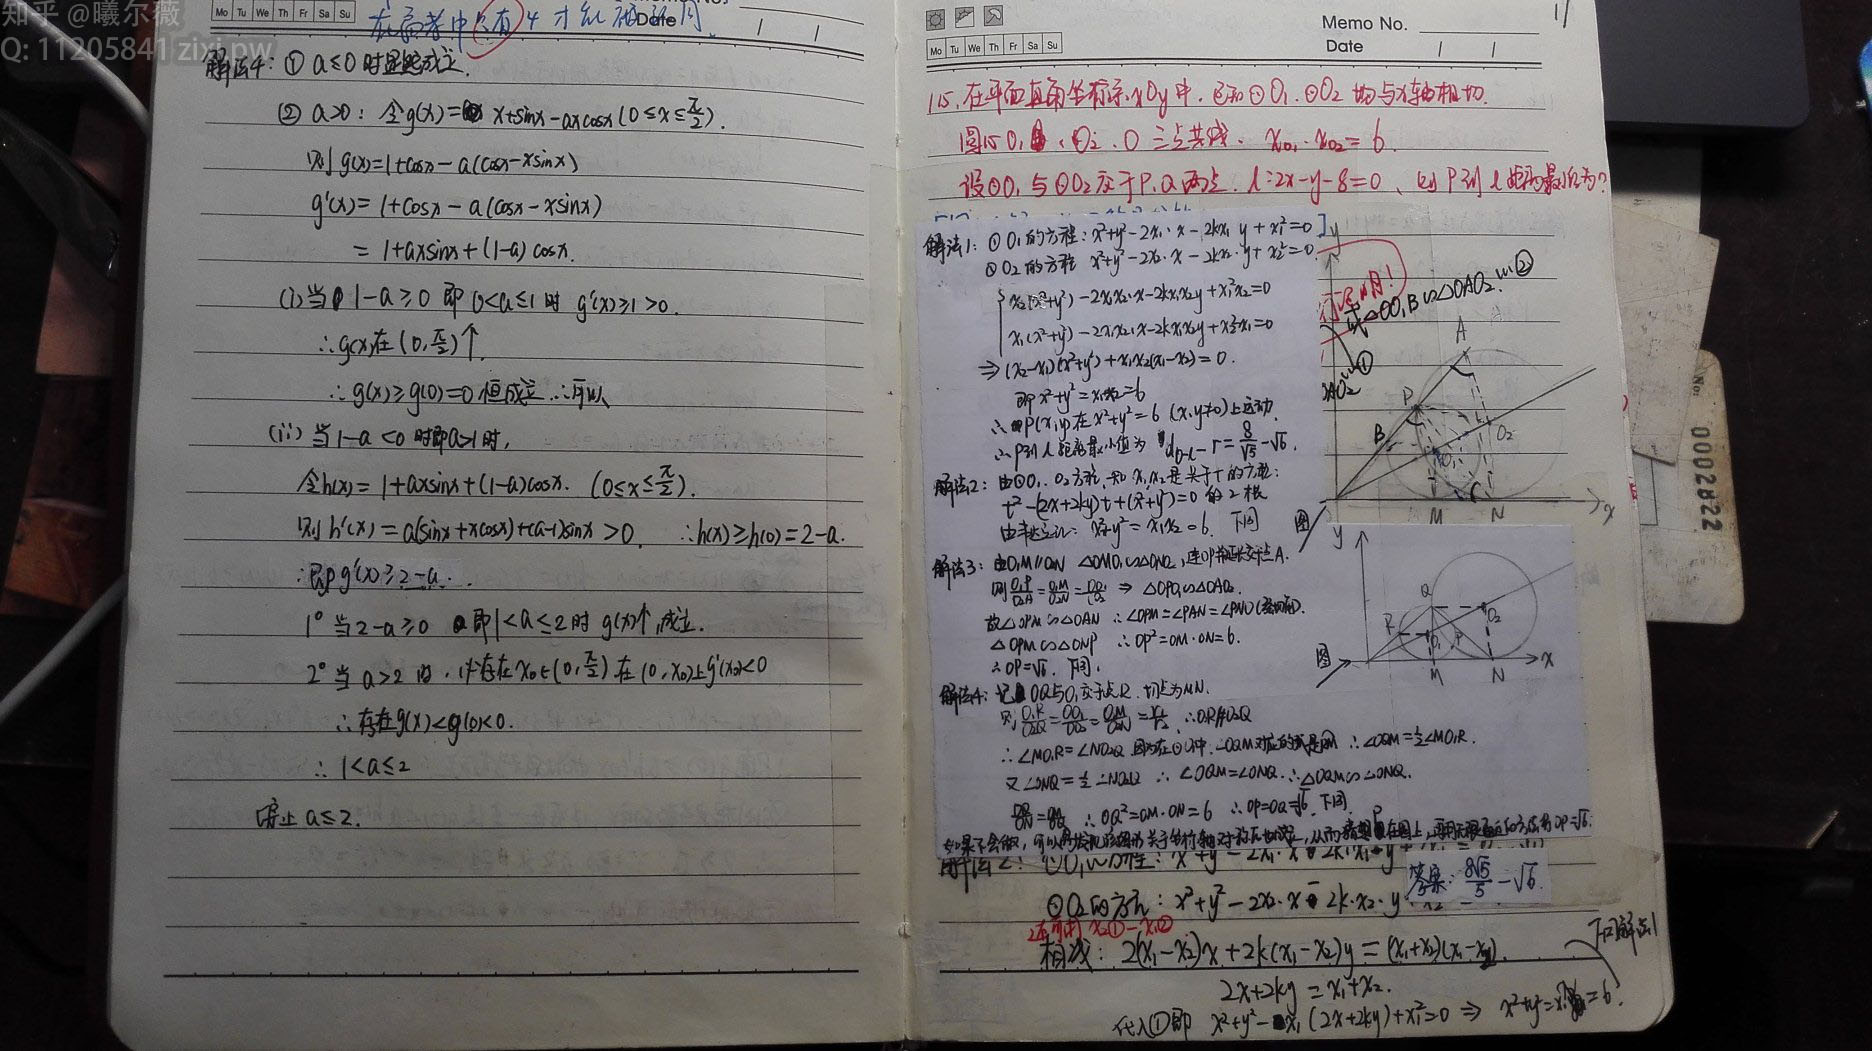 知乎 @曦尔薇
Q: 11205841 zixi.pw
Mo Tu We Th Fr Sa Su
Memo No.
Date
在高考中只有4才能
解法4: ① a≤0时显然成立.
② a>0: 令g(x)= x+sinx-axcosx (0≤x≤π/2).
则 g(x)=1+cosx-a(cosx-xsinx)
g'(x)=1+cosx-a(cosx-xsinx)
=1+axsinx+(1-a)cosx.
(i) 当 1-a≥0 即 0<a≤1 时 g'(x)≥1>0.
∴g(x)在(0,π/2)↑.
∴g(x)≥g(0)=0 恒成立 ∴可以
(ii) 当1-a<0时即a>1时,
令h(x)=1+axsinx+(1-a)cosx. (0≤x≤π/2).
则h'(x)=a(sinx+xcosx)+(a-1)sinx>0. ∴h(x)≥h(0)=2-a.
即g'(x)≥2-a.
1° 当2-a≥0 即1<a≤2时 g(x)↑,成立.
2° 当 a>2 时, 存在x₀∈(0,π/2) 在(0,x₀)上g'(x)<0
∴存在g(x)<g(0)<0.
∴ 1<a≤2
综上 a≤2.
Memo No.
Date
Mo Tu We Th Fr Sa Su
115. 在平面直角坐标系xOy中, 已知⊙O₁, ⊙O₂均与x轴相切.
圆心O₁, O₂, O三点共线, x_{O₁}·x_{O₂}=6.
设⊙O₁与⊙O₂交于P,Q两点, l:2x-y-8=0, 则P到l距离最小值为?
解法1: ⊙O₁的方程: x²+y²-2x₁·x-2kx₁y+x₁²=0
⊙O₂的方程 x²+y²-2x₂·x-2kx₂·y+x₂²=0
x₂(x²+y²)-2x₁x₂·x-2kx₁x₂y+x₁²x₂=0
x₁(x²+y²)-2x₁x₂x-2kx₁x₂y+x₂²x₁=0
⇒(x₂-x₁)(x²+y²)+x₁x₂(x₁-x₂)=0.
即x²+y²=x₁x₂=6
∴P(x,y)在x²+y²=6 (x,y≠0)上运动.
∴P到l距离最小值为 d_{O-l}-r=8/√5-√6.
解法2: 由⊙O₁, O₂方程,知x₁,x₂是关于t的方程:
t²-(2x+2ky)t+(x²+y²)=0 的2根
由韦达定理: x²+y²=x₁x₂=6. 下同
解法3: 由O₁M∥O₂N △OMO₁∽△ONO₂, 连OP并延长交于点A.
则O₁P/O₂A=O₁M/O₂N=OO₁/OO₂ ⇒ △OPO₁∽△OAO₂.
故△OPM∽△OAN ∴∠OPM=∠PAN=∠PNO(弦切角).
△OPM∽△ONP ∴OP²=OM·ON=6.
∴OP=√6. 下同.
解法4: 记OQ与O₁交于点R. 切点为M,N.
则O₁R/O₂Q=OO₁/OO₂=OM/ON=x₁/x₂, ∴O₁R∥O₂Q
∴∠MO₁R=∠NO₂Q 因为在⊙O₁中,∠OQM对应的弧是RM ∴∠OQM=½∠MO₁R.
又∠ONQ=½∠NO₂Q ∴∠OQM=∠ONQ. ∴△OQM∽△ONQ.
∴OQ²=OM·ON=6 ∴OP=OQ=√6. 下同
△OO₁B∽△OAO₂ ②
①
y
A
P
B
O₂
O₁
C
M
N
x
图
y
Q
R
O₂
O₁
P
M
N
x
图
⊙O₁的方程: x²+y²-2x₁·x-2k·x₁·y
答案: 8√5/5-√6.
⊙O₂的方程: x²+y²-2x₂·x-2k·x₂·y
x₂①-x₁②
相减: 2(x₁-x₂)x+2k(x₁-x₂)y=(x₁+x₂)(x₁-x₂).
下同解法1
2x+2ky=x₁+x₂.
代入①即 x²+y²-x₁(2x+2ky)+x₁²=0 ⇒ x²+y²=x₁x₂=6.
No.
0002822